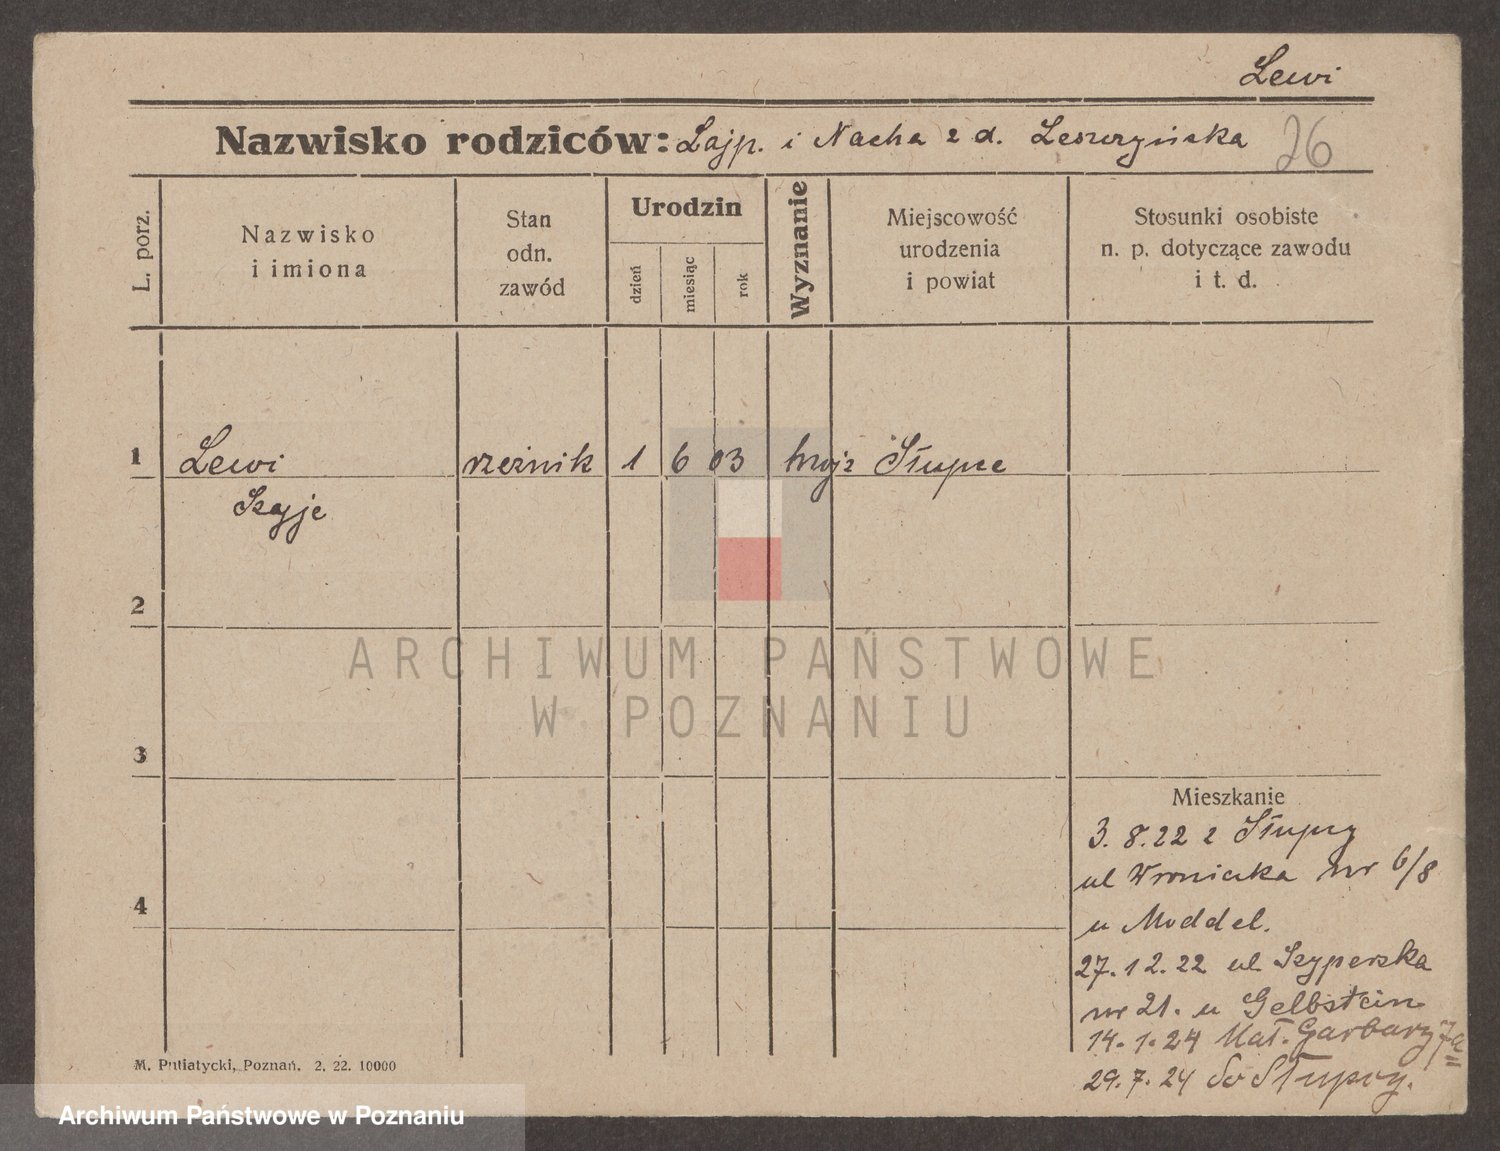 Lewi
Nazwisko rodziców: Lajp. i Nacha z d. Leszczyńska 26
L. porz.
Nazwisko
i imiona
Stan
odn.
zawód
Urodzin
dzień
miesiąc
rok
Wyznanie
Miejscowość
urodzenia
i powiat
Stosunki osobiste
n. p. dotyczące zawodu
i t. d.
1 Lewi rzeźnik 1 6 03 mojż Słupce
Szyje
2
3
4
Mieszkanie
3. 8. 22 z Słupcy
ul Wroniecka nr 6/8
u Moddel.
27. 12. 22 ul Szyperska
nr 21. u Gelbstein
14. 1. 24 Mał. Garbary 7a
29. 7. 24 do Słupcy.
M. Putiatycki, Poznań. 2. 22. 10000
ARCHIWUM PAŃSTWOWE
W POZNANIU
Archiwum Państwowe w Poznaniu